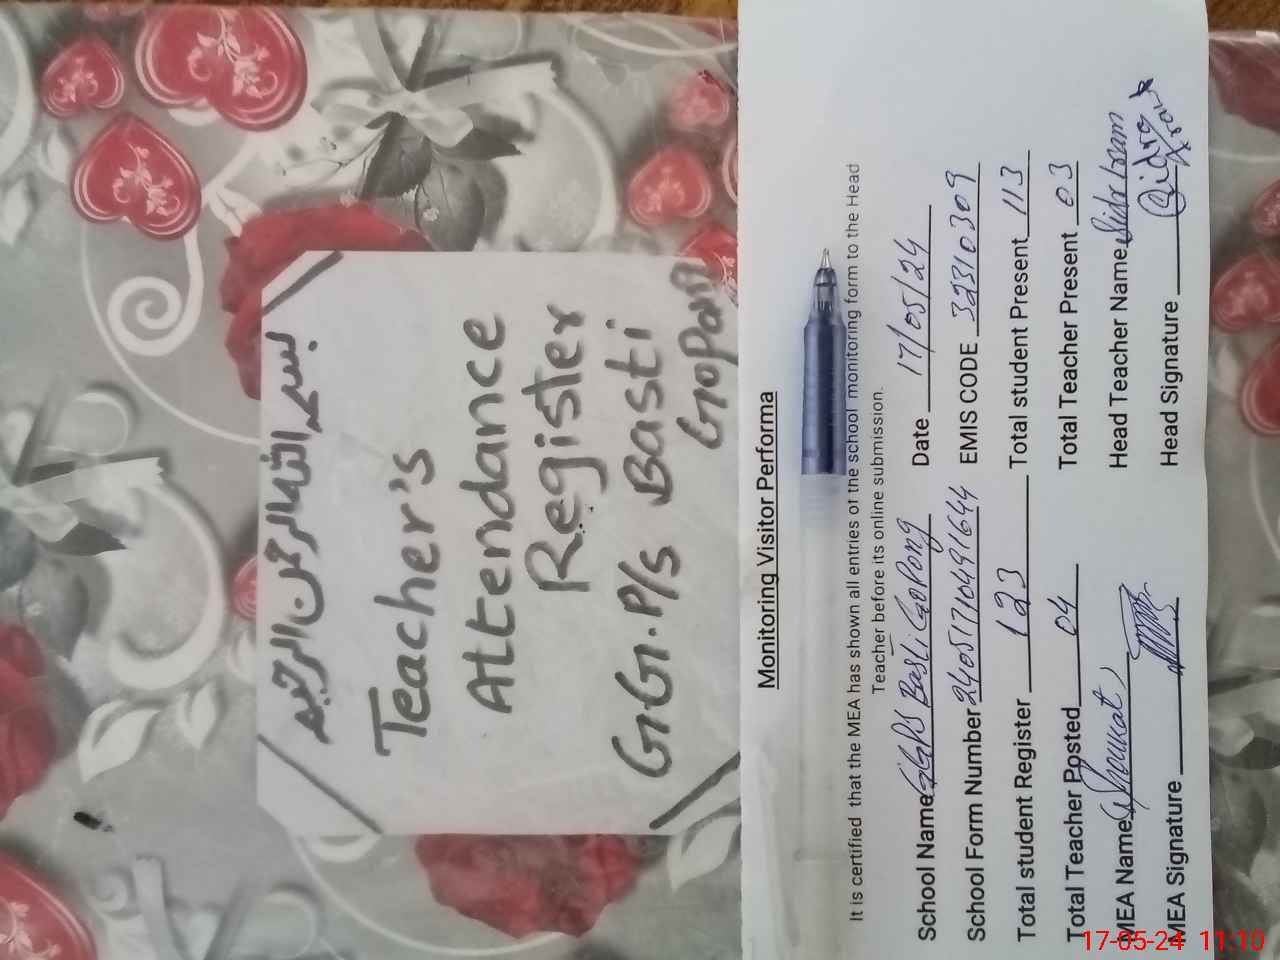 بسم الله الرحمن الرحيم
Teacher's
Attendance
Register
G.G.P/S Basti
GroPang
Monitoring Visitor Performa
It is certified that the MEA has shown all entries of the school monitoring form to the Head
Teacher before its online submission.
School Name GGPS Basti GoPang Date 17/05/24
School Form Number 24051710491644 EMIS CODE 32310309
Total student Register 123 Total student Present 113
Total Teacher Posted 04 Total Teacher Present 03
MEA Name Shoukat Head Teacher Name
MEA Signature Head Signature
17-05-24 11:10